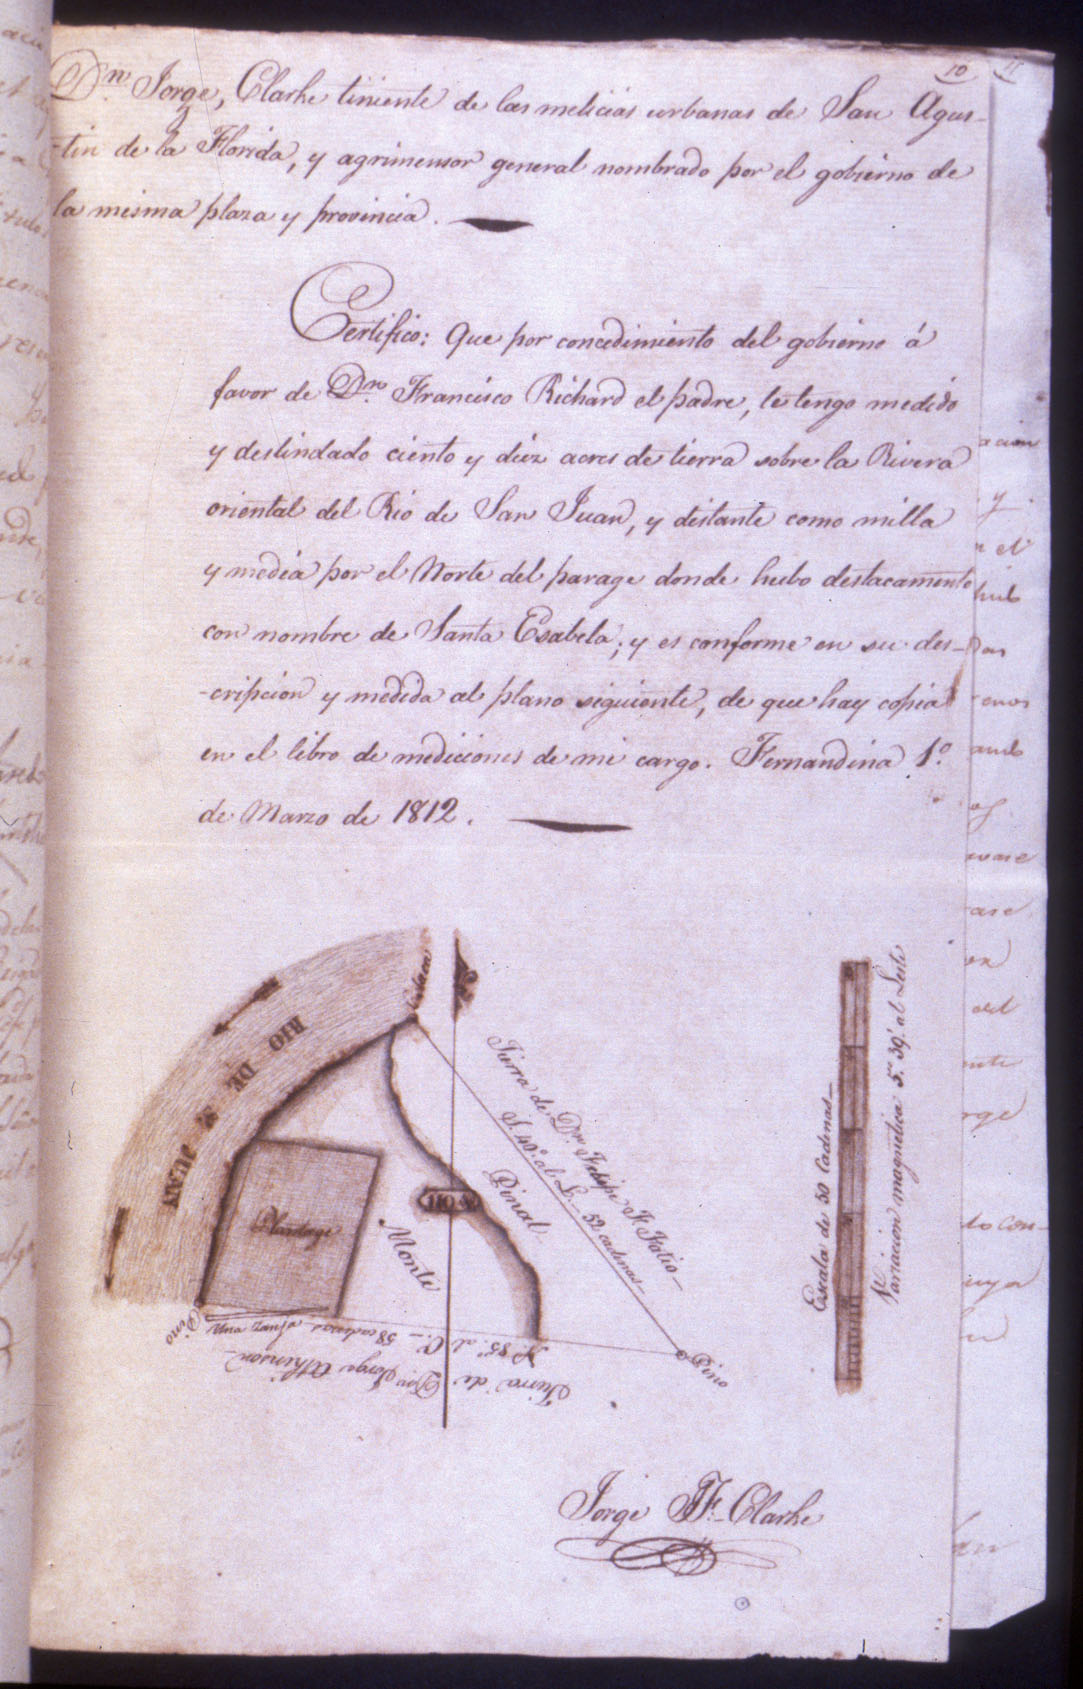 10
11
Dn. Jorge, Clarke tiniente de las melicias urbanas de San Agus-
-tin de la Florida, y agrimensor general nombrado por el gobierno de
la misma plaza y provincia.
Certifico: Que por concedimiento del gobierno á
favor de Dn. Francisco Richard el padre, le tengo medido
y deslindado ciento y diez acres de tierra sobre la Rivera
oriental del Rio de San Juan, y distante como milla
y media por el Norte del parage donde hubo destacamento
con nombre de Santa Esabela; y es conforme en su des-
-cripcion y medida al plano siguiente, de que hay copia
en el libro de mediciones de mi cargo. Fernandina 1.º
de Marzo de 1812.
RIO DE Sn. JUAN
Tierra de Dn. Felipe F. Fatio
S. 40.º al L. – 52 cadenas
Pinal
Plantage
Monte
Pino
Una zanja
N. 85.º al O. – 58 cadenas
Tierra de Dn. Jorge Atkinson
Pino
Escala de 50 Cadenas
Variacion magnetica 5.º 39.' al Leste
Jorge J. F. Clarke